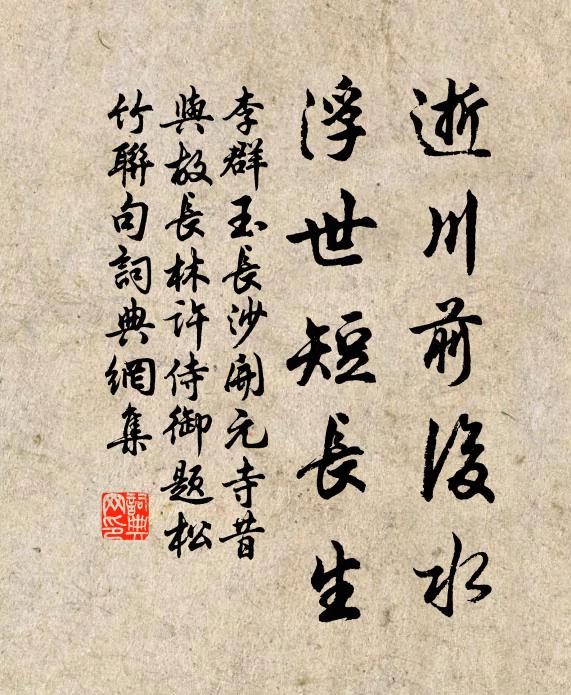 逝川前後水
浮世短長生
李群玉長沙開元寺昔
與故長林許侍御題松
竹聯句詞典網集
詞典
网印